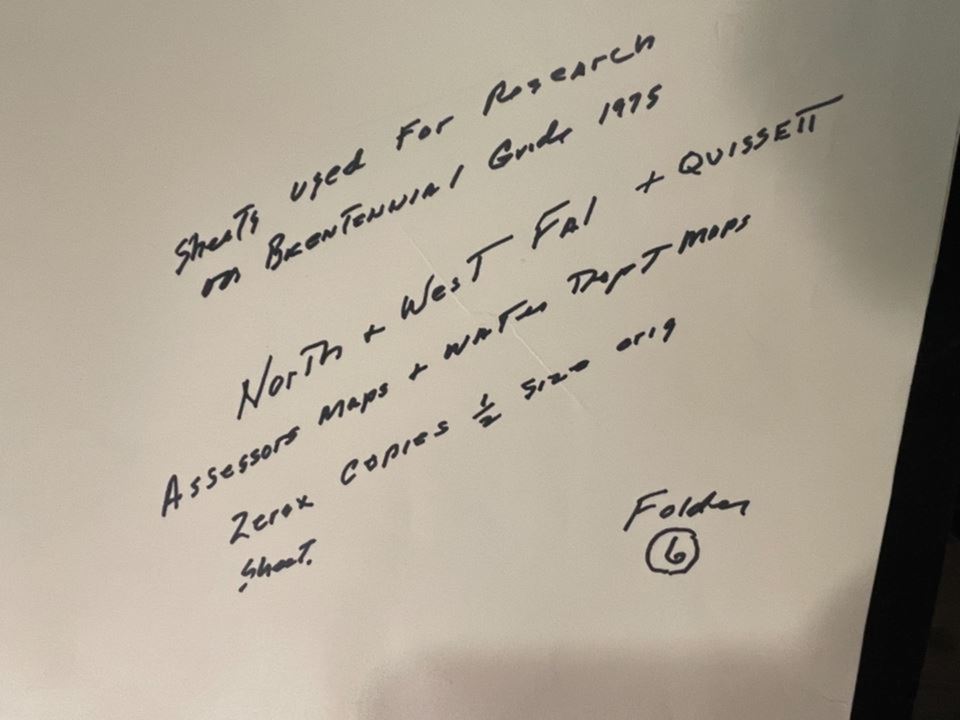 Sheets used For Research
on Bicentennial Guide 1975
North + West Fal + QUISSETT
Assessors Maps + Water Dept Maps
Zerox copies ½ size orig
sheet.
Folder
6